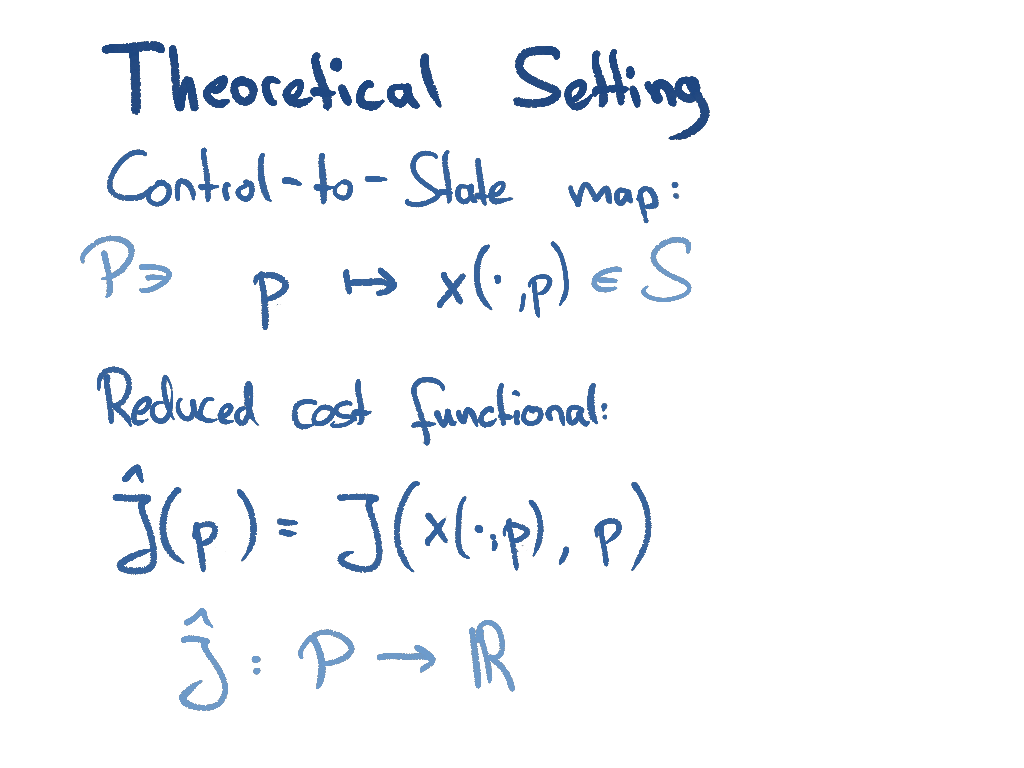 Theoretical Setting
Control-to-State map:
P ∋ p ↦ x(·,p) ∈ S
Reduced cost functional:
Ĵ(p) = J(x(·,p), p)
Ĵ : P → ℝ